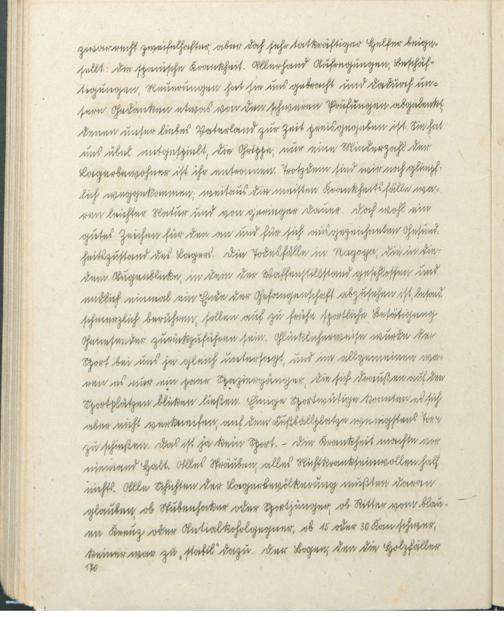 zwar recht zweifelhafter, aber doch sehr tatkräftiger Helfer beige-
sellt: die spanische Krankheit. Allerhand Aufregungen, Beschäf-
tigungen, Neuerungen hat sie uns gebracht und dadurch un-
sere Gedanken etwas von den schweren Prüfungen abgelenkt,
denen unser liebes Vaterland zur Zeit preisgegeben ist. Sie hat
uns übel mitgespielt, die Grippe, nur eine Minderzahl der
Lagerbewohner ist ihr entronnen. Trotzdem sind wir noch glimpf-
lich weggekommen, weitaus die meisten Krankheitsfälle wa-
ren leichter Natur und von geringer Dauer. Doch wohl ein
gutes Zeichen für den an und für sich ausgezeichneten Gesund-
heitszustand des Lagers. Die Todesfälle in Nagoya, die in die-
sem Augenblicke, in dem der Waffenstillstand geschlossen und
endlich einmal ein Ende der Gefangenschaft abzusehen ist,
schmerzlich berühren, sollen auf zu frühe sportliche Betätigung
Genesender zurückzuführen sein. Glücklicherweise wurde der
Sport bei uns ja gleich untersagt, und im allgemeinen wa-
ren es nur ein paar Spaziergänger, die sich draußen auf den
Sportplätzen blicken ließen. Einige Sportwütige konnten es sich
aber nicht verkneifen, auf dem Fußballplatze wenigstens Tore
zu schießen. Das ist ja kein Sport. – Die Krankheit machte vor
niemand Halt. Alles Sträuben, alles Nichtkranksein­wollen half
nichts. Alle Schichten der Lagerbevölkerung mußten daran
glauben, ob Stubenhocker oder Sportjünger, ob Ritter vom blau-
en Kreuz oder Antialkoholgegner, ob 15 oder 30 Kam schwer,
keiner war zu „stabil" dazu. Der Bogen, den die Holzfäller
70